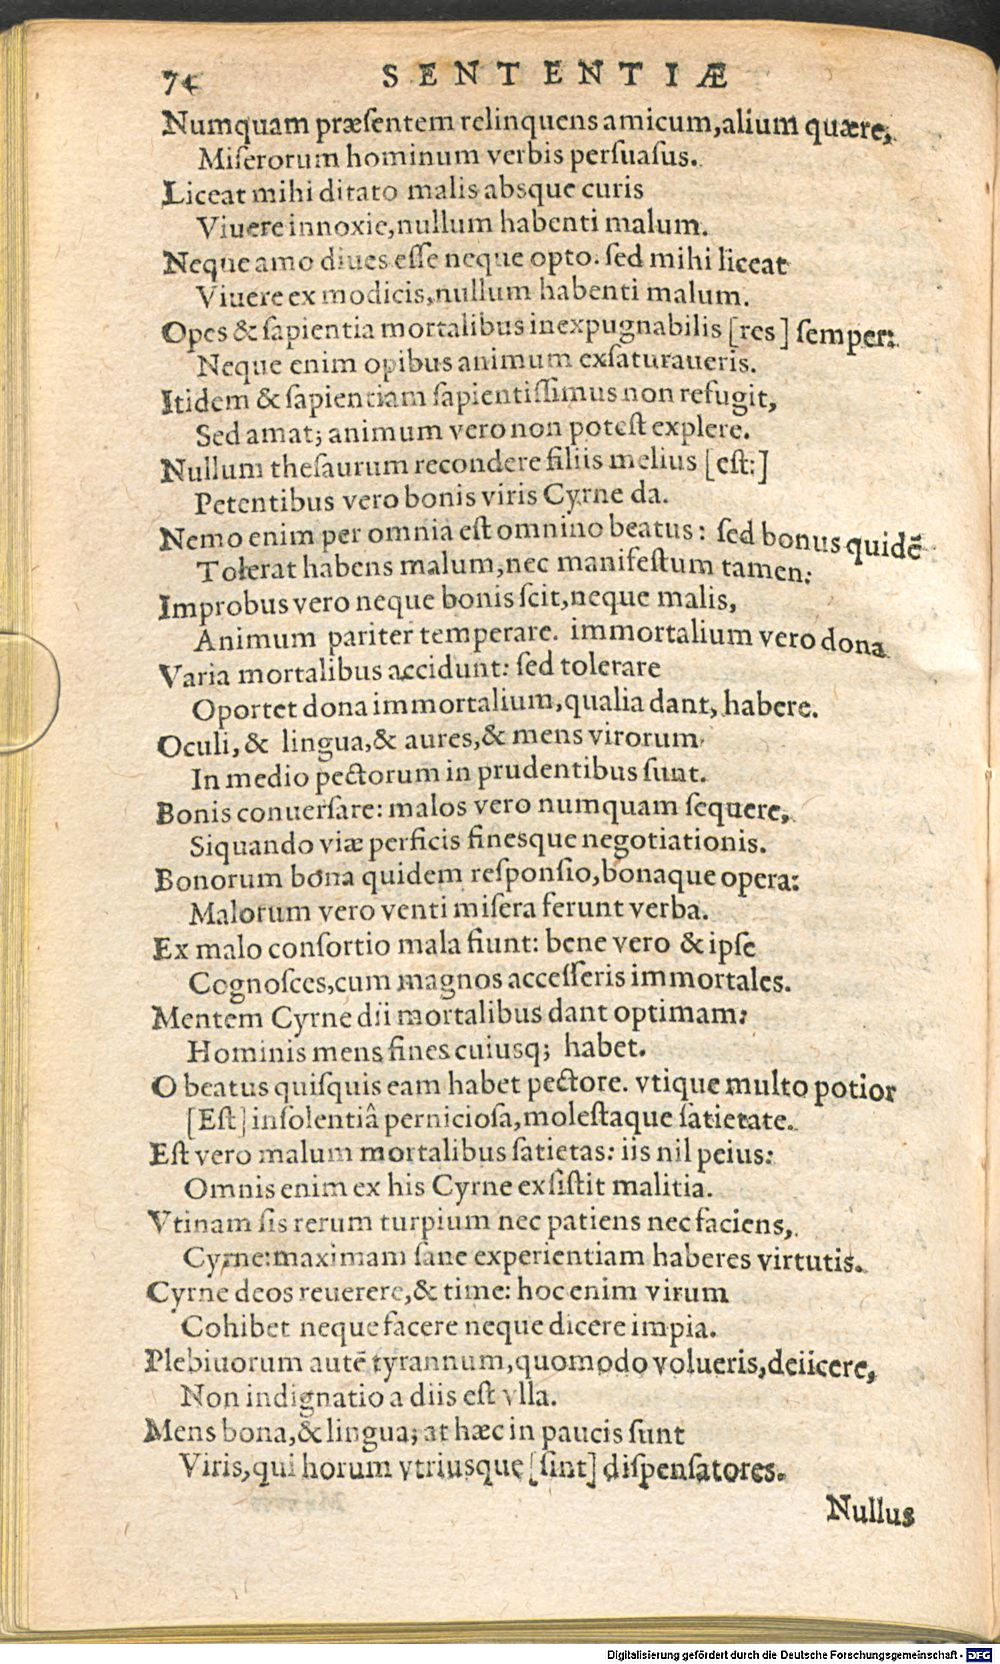 74 SENTENTIÆ
Numquam præſentem relinquens amicum,alium quære,
Miſerorum hominum verbis perſuaſus.
Liceat mihi ditato malis absque curis
Viuere innoxie,nullum habenti malum.
Neque amo diues eſſe neque opto. ſed mihi liceat
Viuere ex modicis,nullum habenti malum.
Opes & ſapientia mortalibus inexpugnabilis [res] ſemper:
Neque enim opibus animum exſaturaueris.
Itidem & ſapientiam ſapientiſſimus non refugit,
Sed amat; animum vero non poteſt explere.
Nullum theſaurum recondere filiis melius [eſt:]
Petentibus vero bonis viris Cyrne da.
Nemo enim per omnia eſt omnino beatus: ſed bonus quidē
Tolerat habens malum,nec manifeſtum tamen:
Improbus vero neque bonis ſcit,neque malis,
Animum pariter temperare. immortalium vero dona
Varia mortalibus accidunt: ſed tolerare
Oportet dona immortalium,qualia dant, habere.
Oculi, & lingua,& aures,& mens virorum
In medio pectorum in prudentibus ſunt.
Bonis conuerſare: malos vero numquam ſequere,
Siquando viæ perficis fineſque negotiationis.
Bonorum bona quidem reſponſio,bonaque opera:
Malorum vero venti miſera ferunt verba.
Ex malo conſortio mala fiunt: bene vero & ipſe
Cognoſces,cum magnos acceſſeris immortales.
Mentem Cyrne dii mortalibus dant optimam:
Hominis mens fines cuiusq; habet.
O beatus quiſquis eam habet pectore. vtique multo potior
[Eſt] inſolentiâ pernicioſa,moleſtaque ſatietate.
Eſt vero malum mortalibus ſatietas: iis nil peius:
Omnis enim ex his Cyrne exſiſtit malitia.
Vtinam ſis rerum turpium nec patiens nec faciens,
Cyrne:maximam ſane experientiam haberes virtutis.
Cyrne deos reuerere,& time: hoc enim virum
Cohibet neque facere neque dicere impia.
Plebiuorum autē tyrannum,quomodo volueris,deiicere,
Non indignatio a diis eſt vlla.
Mens bona,& lingua; at hæc in paucis ſunt
Viris,qui horum vtriusque [ſint] diſpenſatores.
Nullus
Digitalisierung gefördert durch die Deutsche Forschungsgemeinschaft - DFG